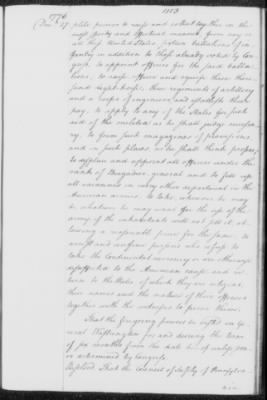 1776
Dec. 27 plete powers to raise and collect together in the
most speedy and effectual manner from any or
all these United States sixteen battalions of in
fantry in addition to those already voted by Con
gress. to appoint officers for the said batta
lions, to raise officer and equip three thou
sand light-horse, three regiments of artillery
and a corps of engineers and establish their
pay. to apply to any of the States for such
aid of the militia as he shall judge necessary
to form such magazines of provisions
and in such places, as he shall think proper;
to displace and appoint all officers under the
rank of Brigadier general and to fill up
all vacancies in every other department in the
American armies. to take, wherever he may
be whatever he may want for the use of the
army if the inhabitants will not sell it al
lowing a reasonable price for the same. to
arrest and confine persons who refuse to
take the Continental currency or are otherwise
disaffected to the American cause and re
turn to the States of which they are citizens
their names and the nature of their offences
together with the witnesses to prove them.
That the foregoing powers be vested in Ge
neral Washington for and during the term
of six months from the date hereof unless soon
er determined by Congress.
Resolved That the council of safety of Pennsylva
nia